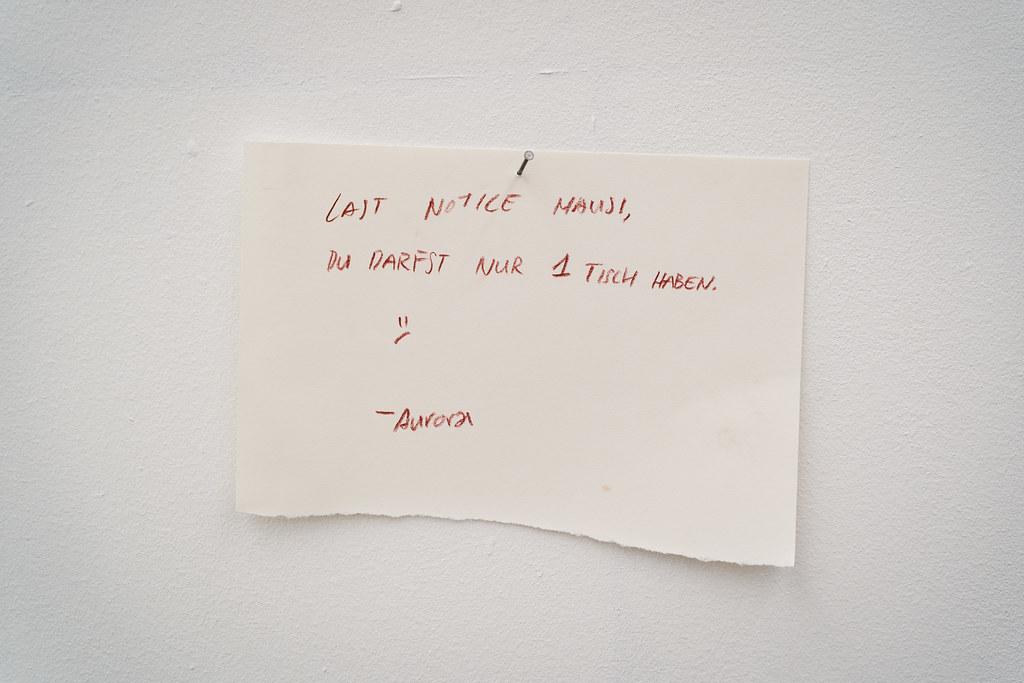 LAST NOTICE MAUSI,
DU DARFST NUR 1 TISCH HABEN.
-Aurora